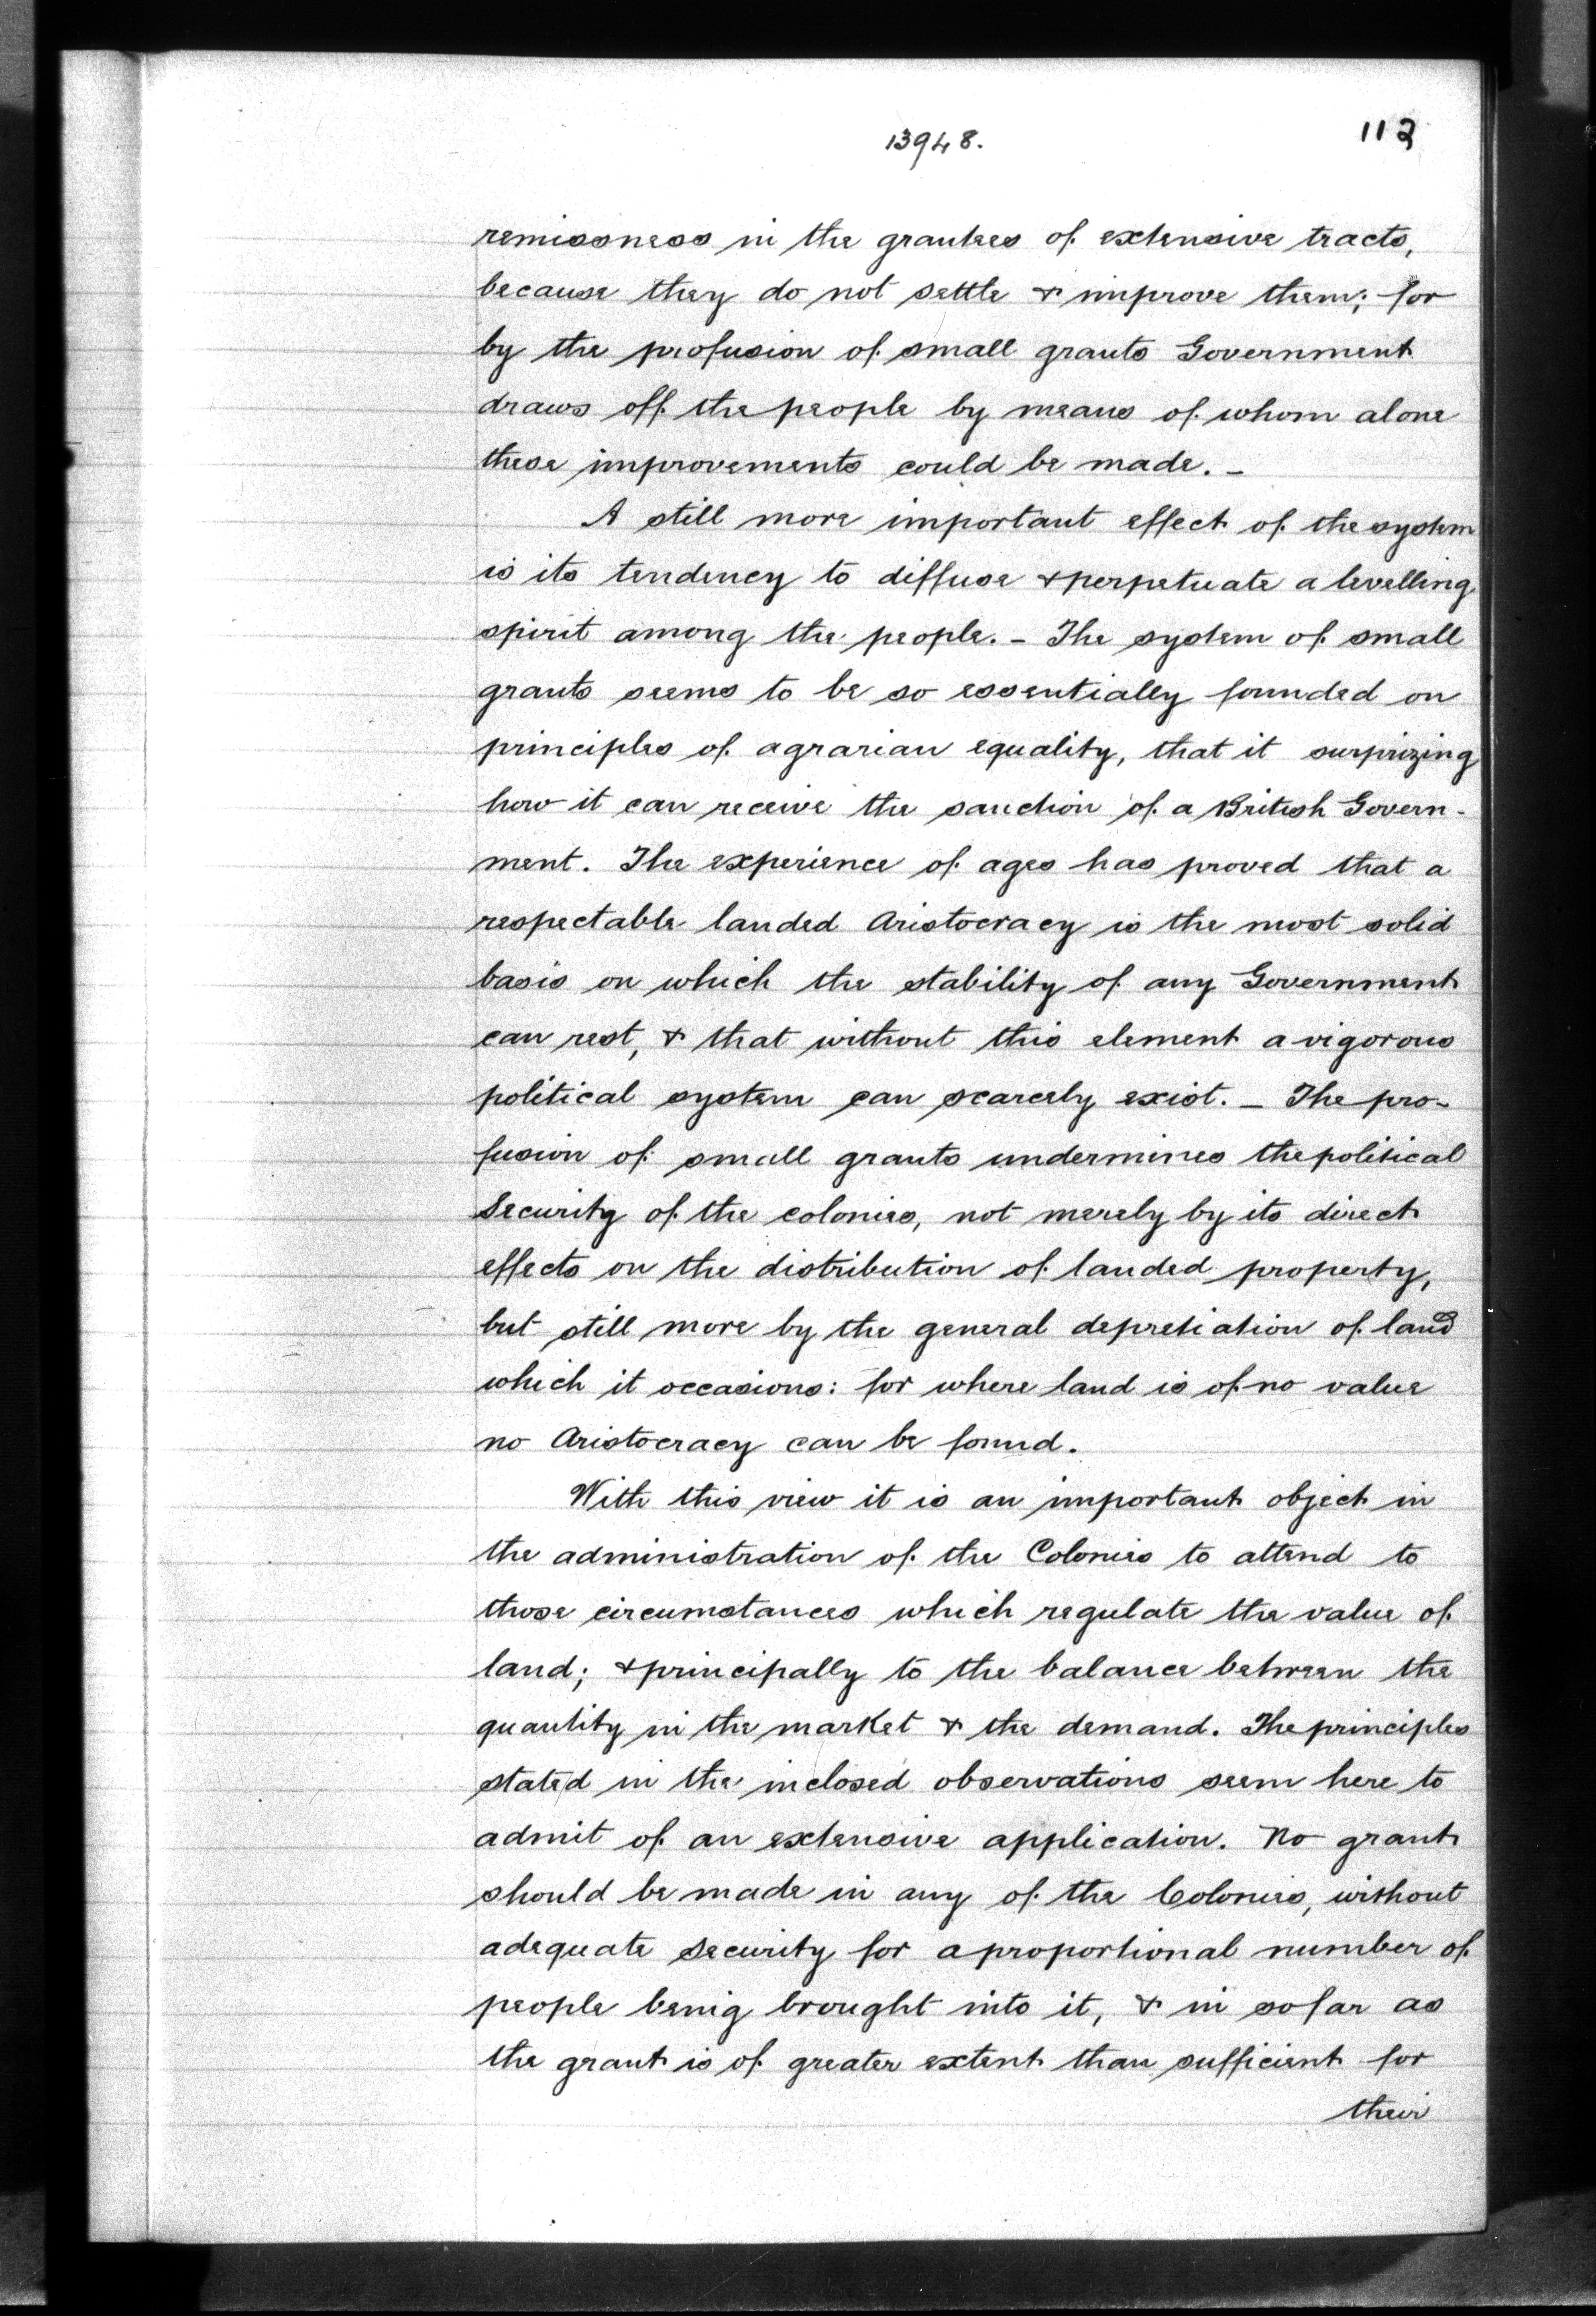 13948.
112
remissness in the grantees of extensive tracts,
because they do not settle & improve them; for
by the profusion of small grants Government
draws off the people by means of whom alone
these improvements could be made. –
A still more important effect of the system
is its tendency to diffuse & perpetuate a levelling
spirit among the people. – The system of small
grants seems to be so essentially founded on
principles of agrarian equality, that it surprizing
how it can receive the sanction of a British Govern-
ment. The experience of ages has proved that a
respectable landed Aristocracy is the most solid
basis on which the stability of any Government
can rest, & that without this element a vigorous
political system can scarcely exist. – The pro-
fusion of small grants undermines the political
Security of the colonies, not merely by its direct
effects on the distribution of landed property,
but still more by the general depretiation of land
which it occasions: for where land is of no value
no Aristocracy can be found.
With this view it is an important object in
the administration of the Colonies to attend to
those circumstances which regulate the value of
land; & principally to the balance between the
quantity in the market & the demand. The principles
stated in the inclosed observations seem here to
admit of an extensive application. No grant
should be made in any of the Colonies, without
adequate security for a proportional number of
people being brought into it, & in so far as
the grant is of greater extent than sufficient for
their